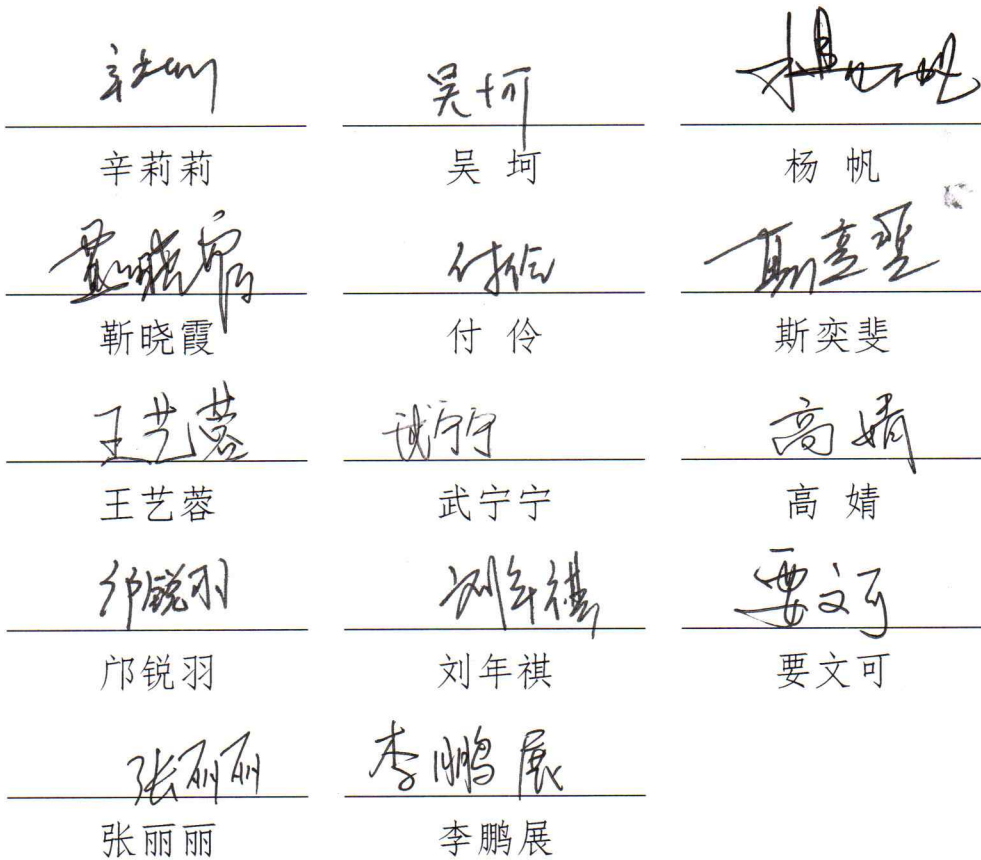 辛莉莉 吴坷 杨帆
辛莉莉 吴坷 杨帆
靳晓霞 付伶 斯奕斐
靳晓霞 付伶 斯奕斐
王艺蓉 武宁宁 高婧
王艺蓉 武宁宁 高婧
邝锐羽 刘年祺 要文可
邝锐羽 刘年祺 要文可
张丽丽 李鹏展
张丽丽 李鹏展